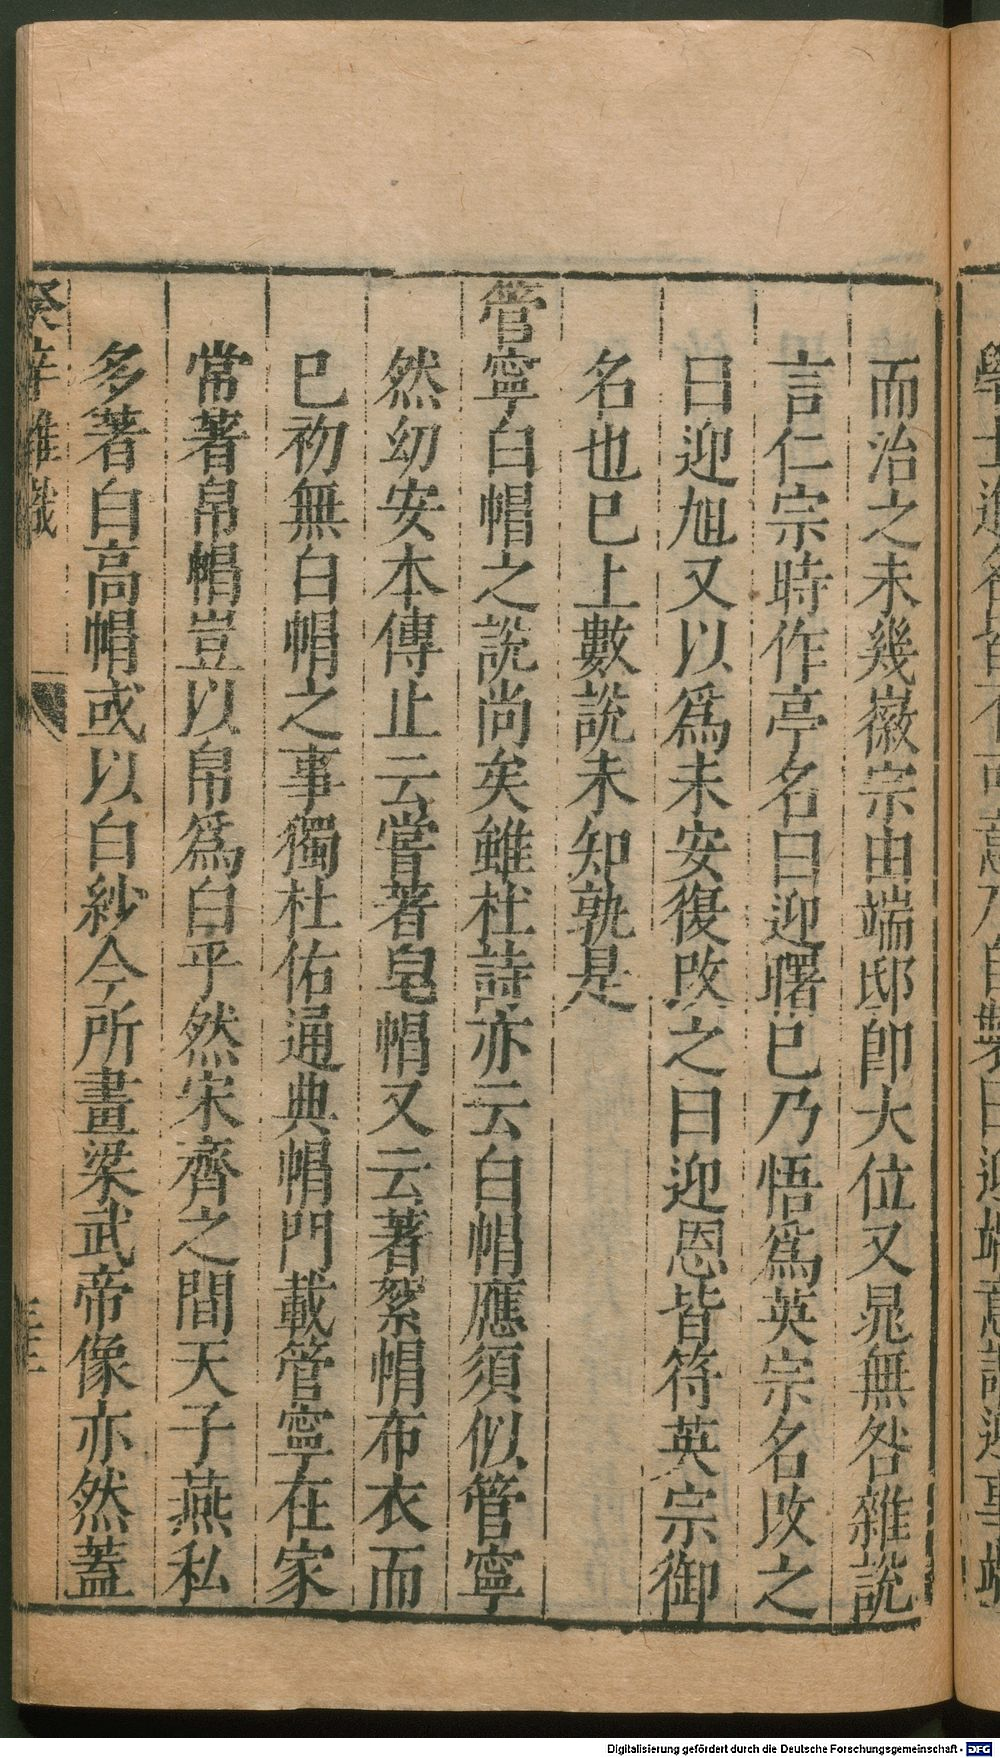 而治之未幾徽宗由端邸卽大位又晁無咎雜說
言仁宗時作亭名曰迎曙已乃悟爲英宗名改之
曰迎旭又以爲未安復改之曰迎恩皆符英宗御
名也已上數說未知孰是
管寧白帽之說尚矣雖杜詩亦云白帽應須似管寧
然幼安本傳止云嘗著皂帽又云著絮帽布衣而
已初無白帽之事獨杜佑通典帽門載管寧在家
常著帛帽豈以帛爲白乎然宋齊之間天子燕私
多著白高帽或以白紗今所畫梁武帝像亦然蓋
Digitalisierung gefördert durch die Deutsche Forschungsgemeinschaft - DFG